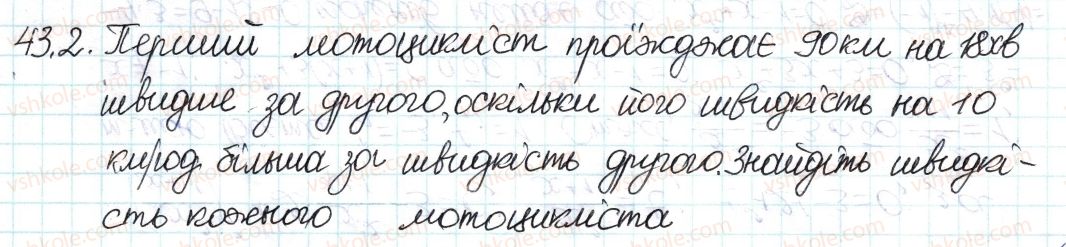 43.2. Перший мотоцикліст проїжджає 90 км на 18хв
швидше за другого, оскільки його швидкість на 10
км/год. більша за швидкість другого. Знайдіть швидкі-
сть кожного мотоцикліста